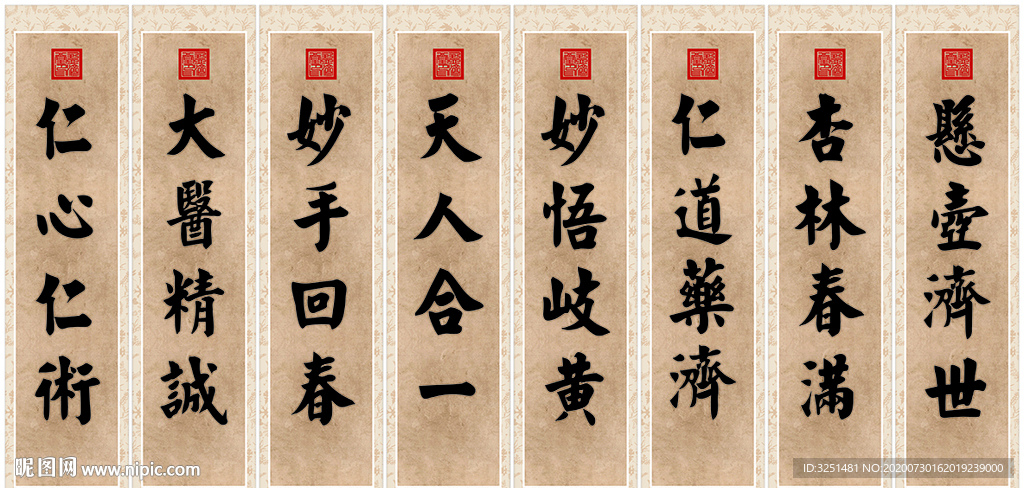 懸壺濟世
杏林春滿
仁道藥濟
妙悟岐黄
天人合一
妙手回春
大醫精誠
仁心仁術
昵图网 www.nipic.com
ID:3251481 NO:20200730162019239000